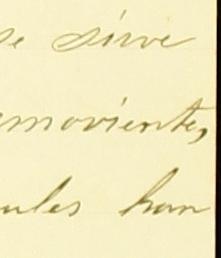 se sirve
emoviente,
ules han